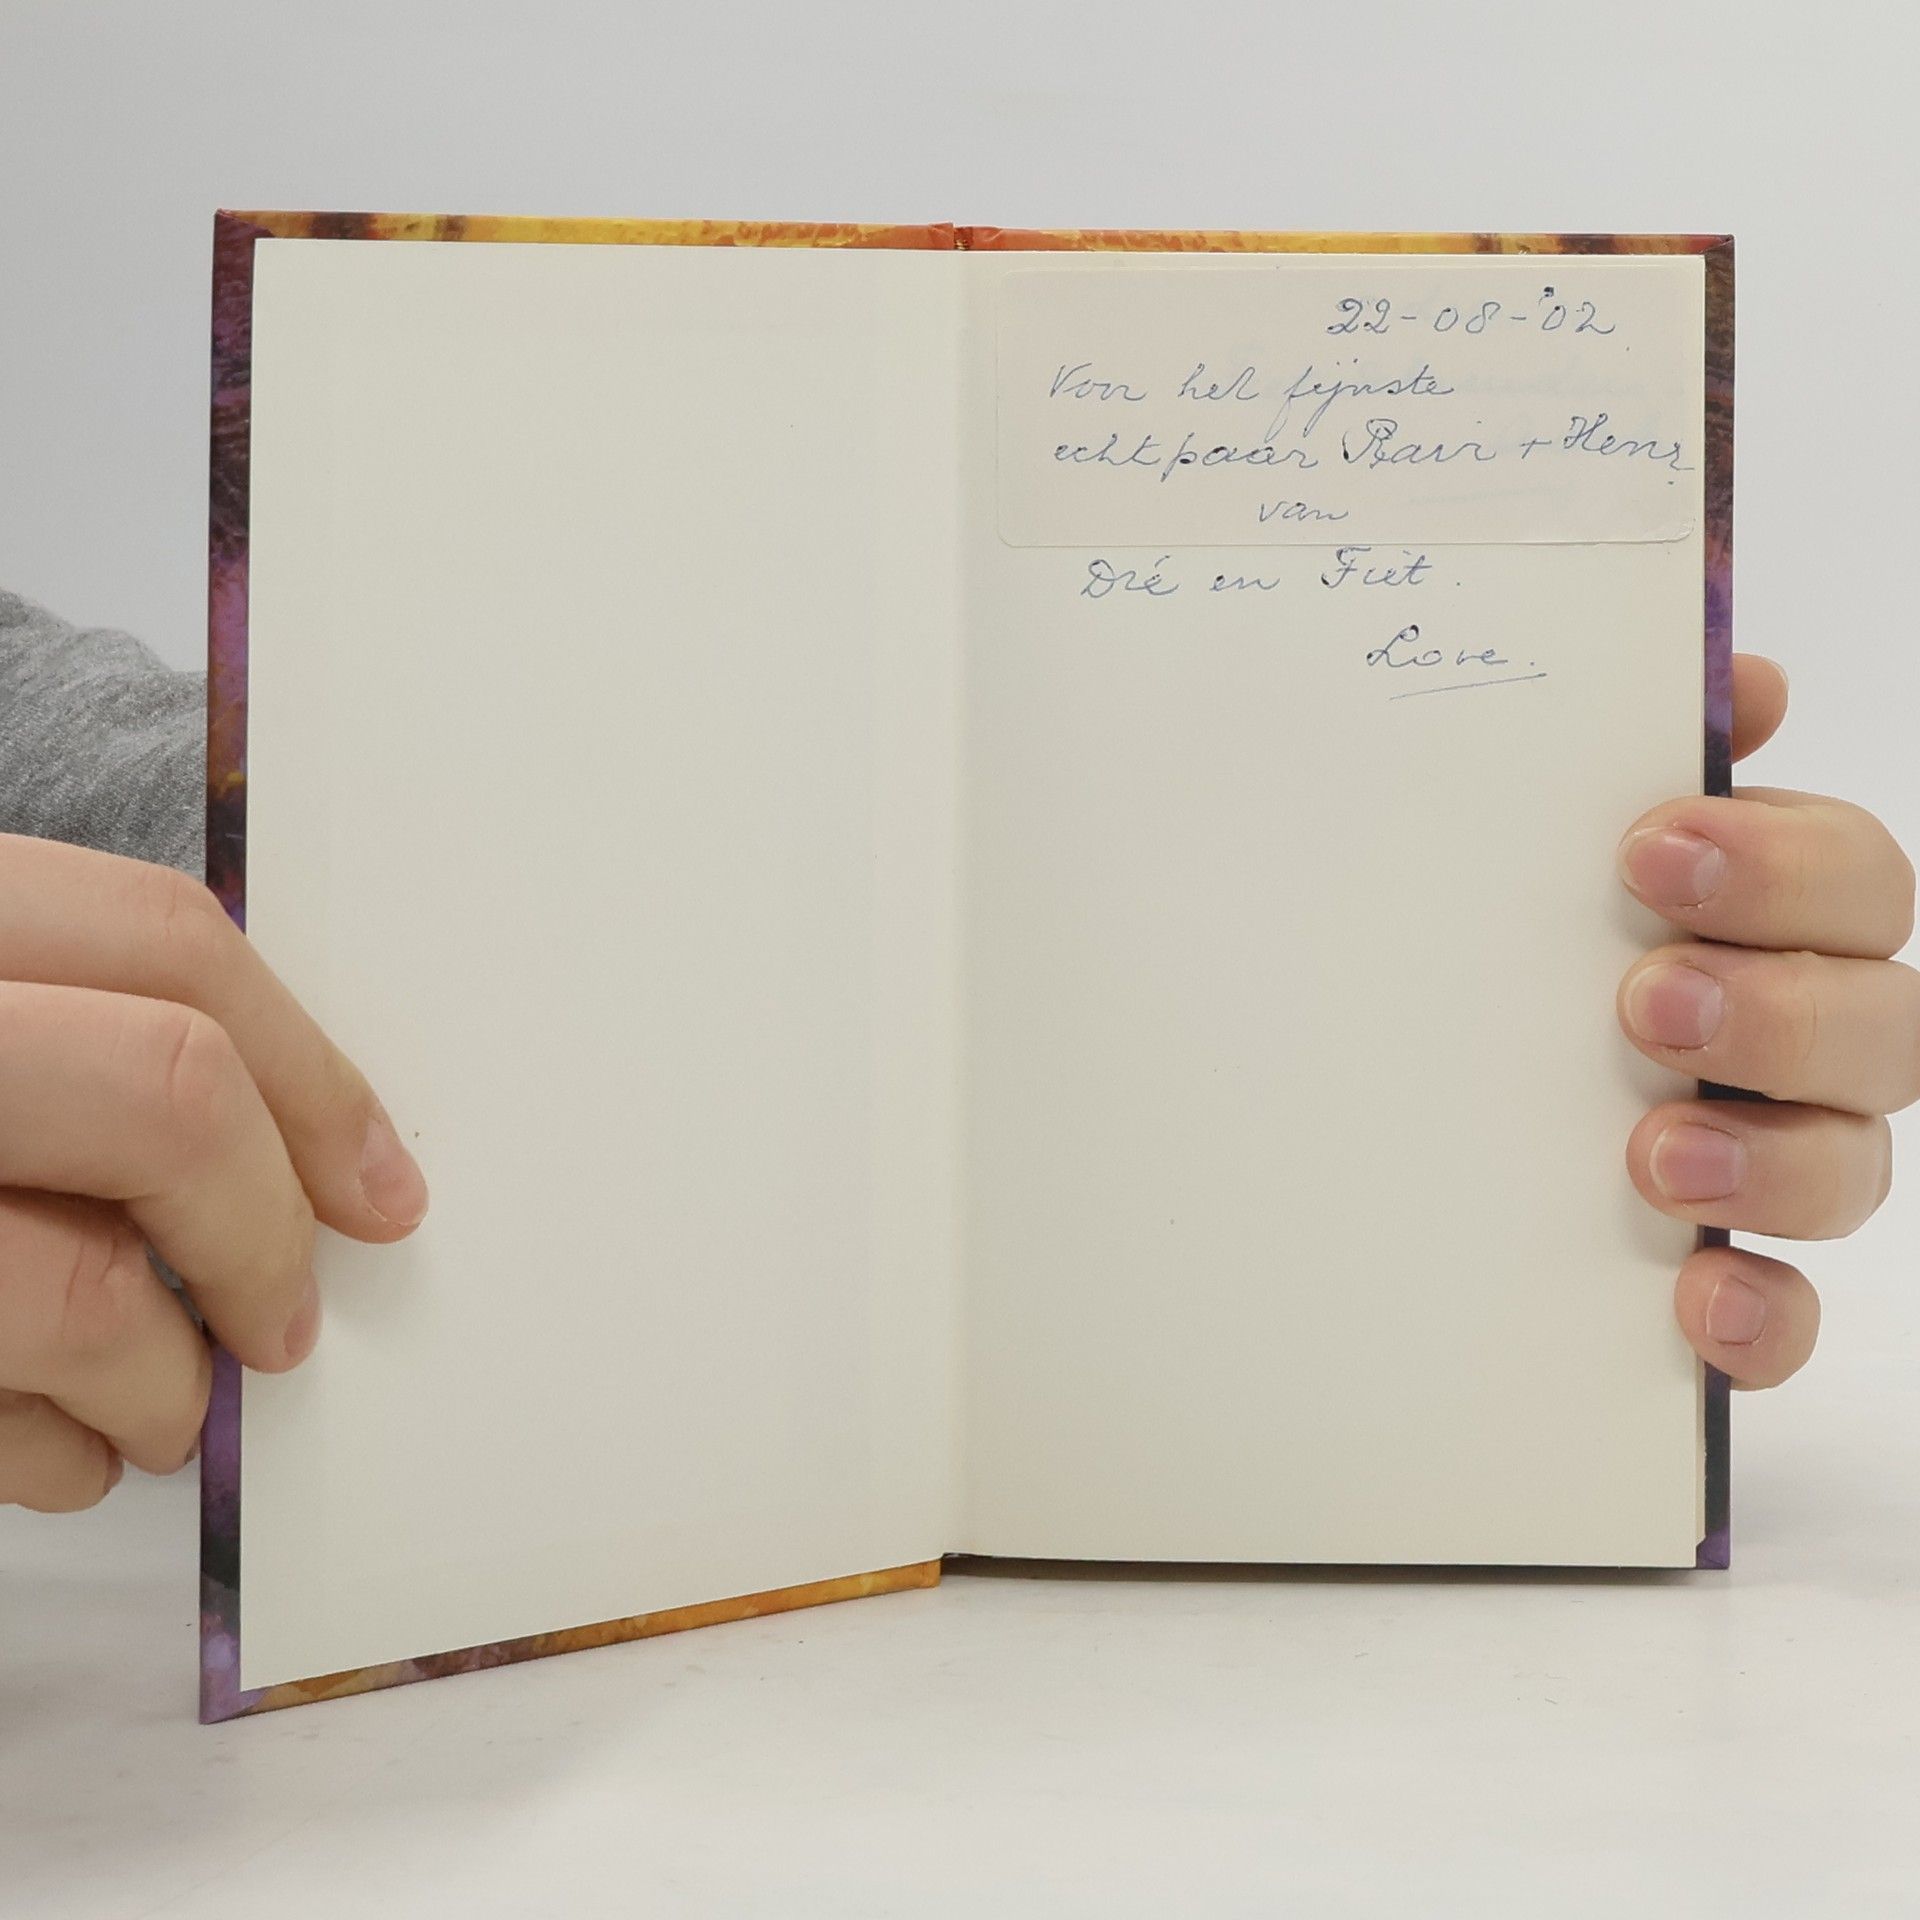 22-08-'02
Voor het fijnste
echtpaar + Henr
van
Dré en Fiet.
Love.